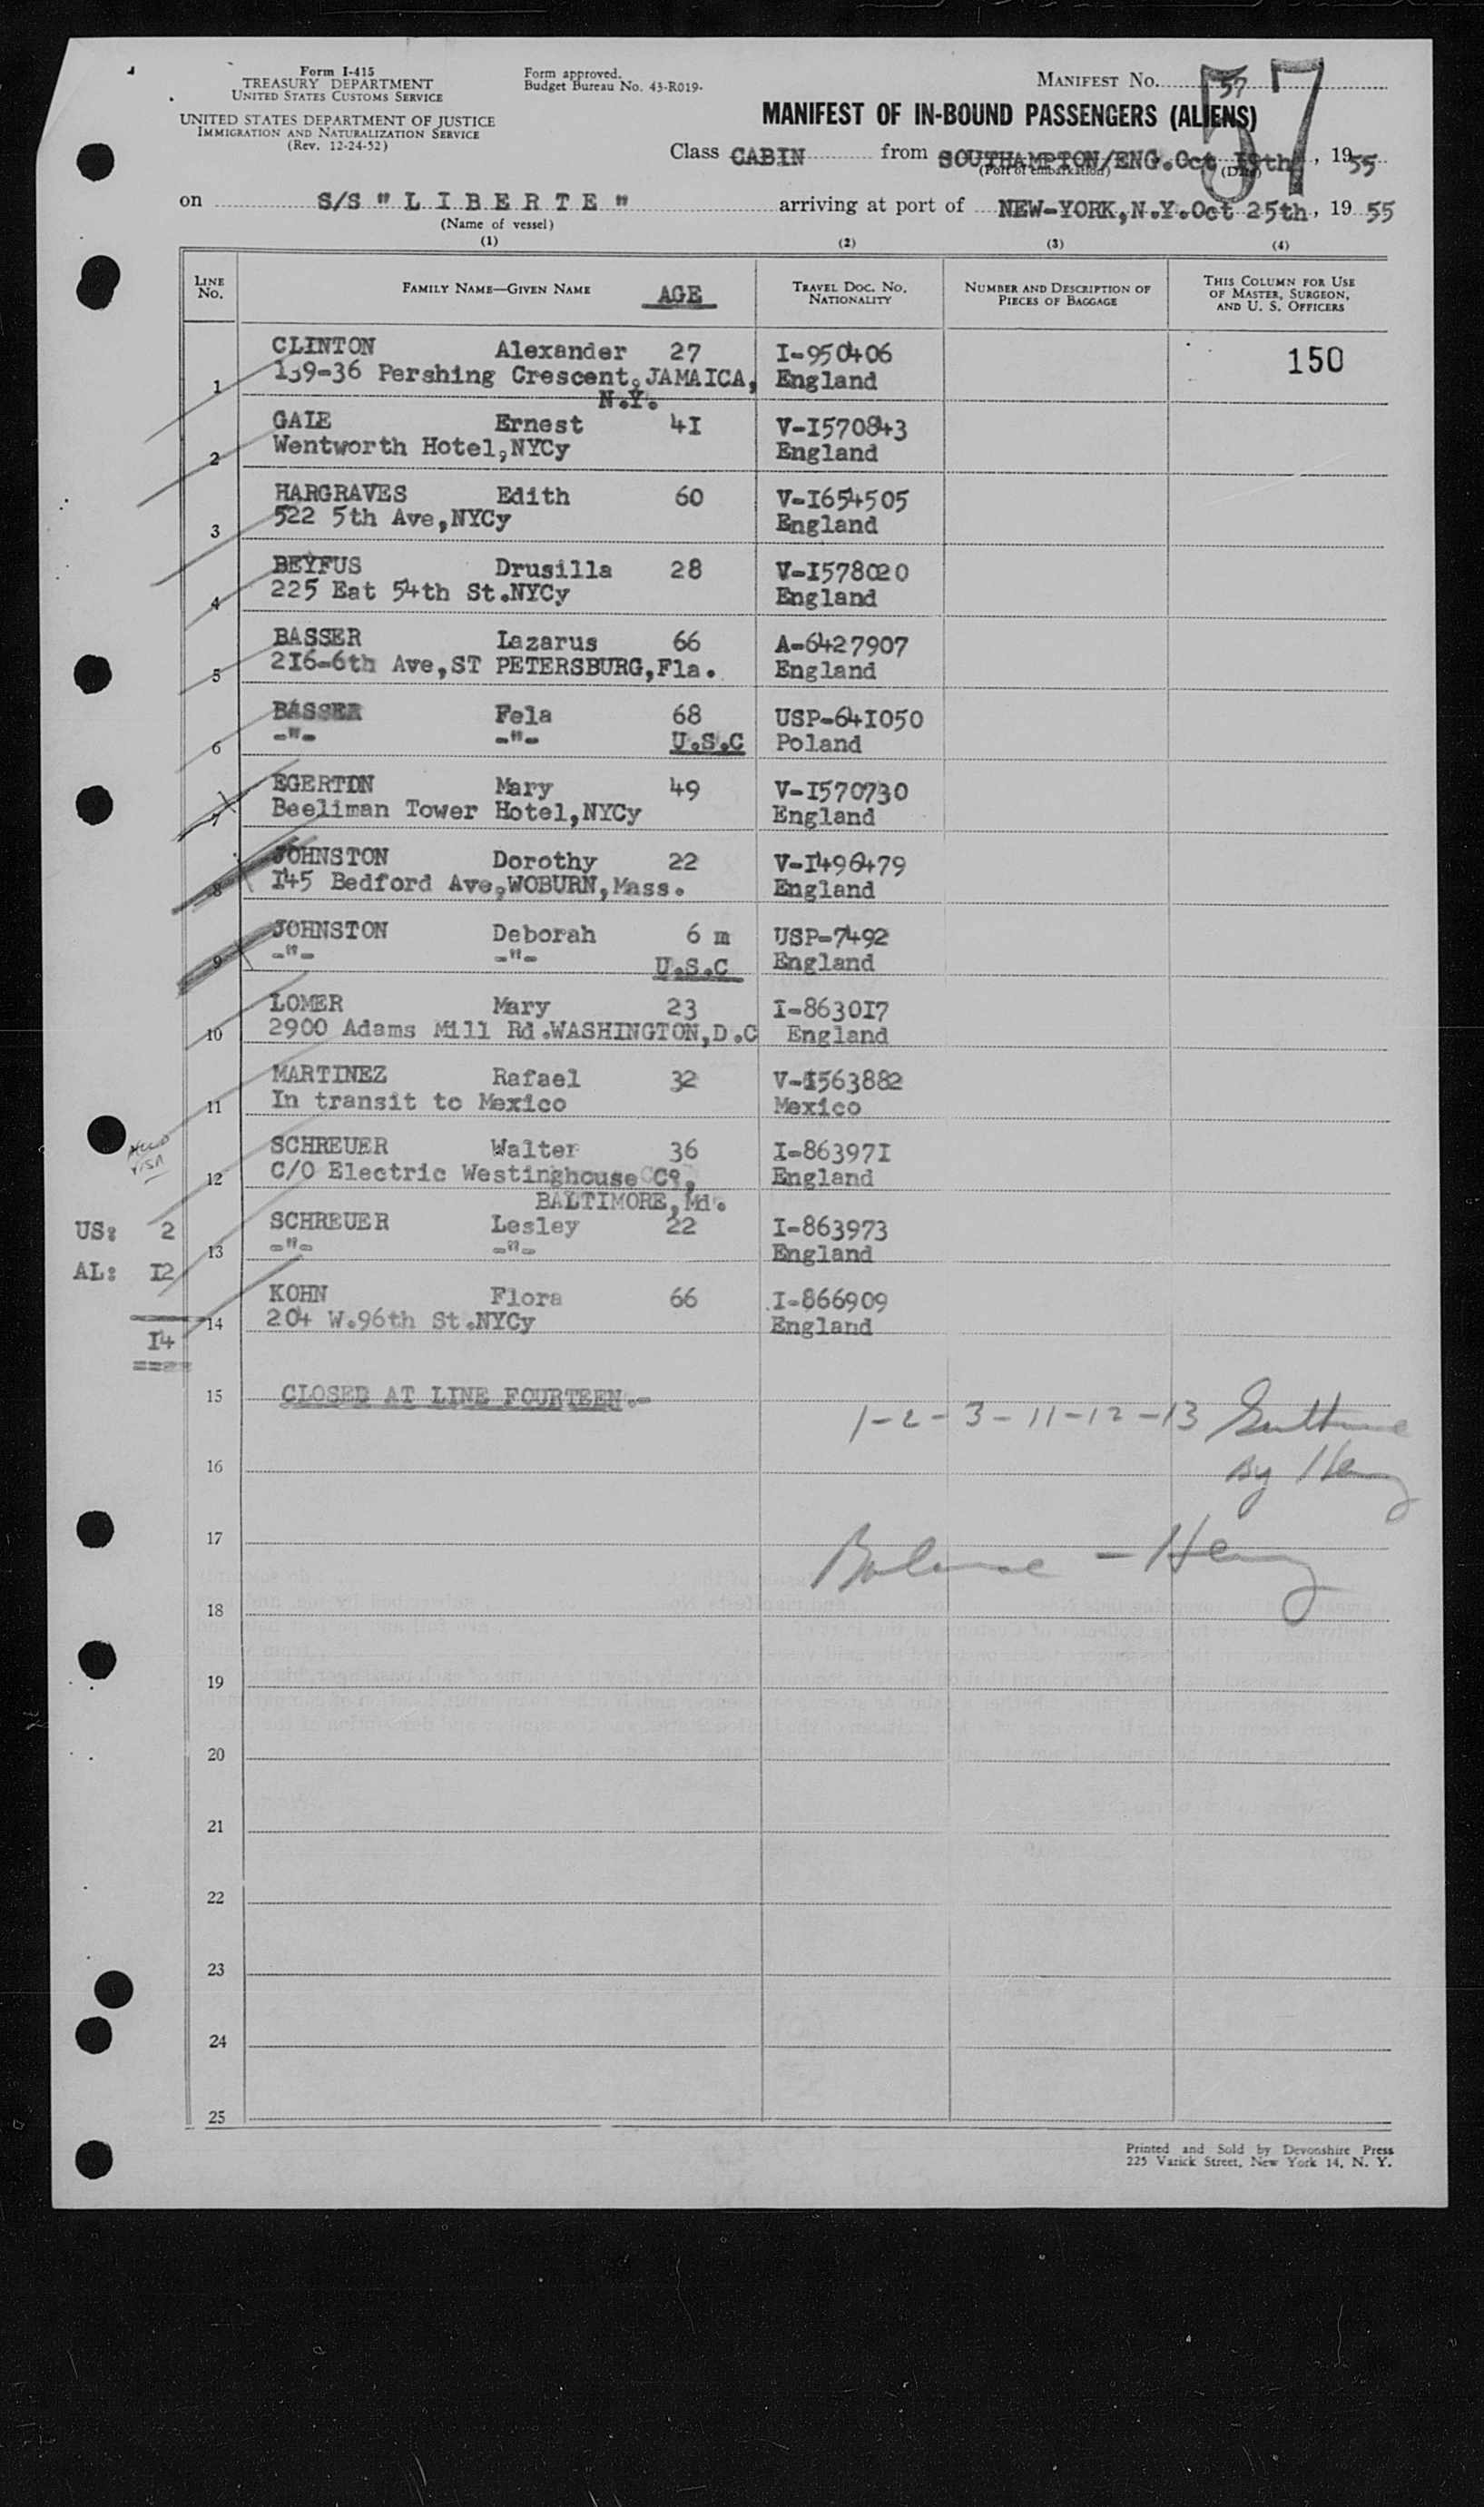 Form I-415
TREASURY DEPARTMENT
UNITED STATES CUSTOMS SERVICE
UNITED STATES DEPARTMENT OF JUSTICE
IMMIGRATION AND NATURALIZATION SERVICE
(Rev. 12-24-52)
Form approved.
Budget Bureau No. 43-R019.
MANIFEST No. 57
57
MANIFEST OF IN-BOUND PASSENGERS (ALIENS)
Class CABIN from SOUTHAMPTON/ENG.Oct 19th, 1955
(Port of embarkation) (Date)
on S/S "L I B E R T E" arriving at port of NEW-YORK,N.Y.Oct 25th, 1955
(Name of vessel)
(1) (2) (3) (4)
LINE No. FAMILY NAME—GIVEN NAME AGE TRAVEL DOC. NO. NATIONALITY NUMBER AND DESCRIPTION OF PIECES OF BAGGAGE THIS COLUMN FOR USE OF MASTER, SURGEON, AND U. S. OFFICERS
CLINTON Alexander 27 I-950406 150
1 139-36 Pershing Crescent,JAMAICA, England
N.Y.
GALE Ernest 4I V-I570843
2 Wentworth Hotel,NYCy England
HARGRAVES Edith 60 V-I654505
3 522 5th Ave,NYCy England
BEYFUS Drusilla 28 V-I578020
4 225 Eat 54th St.NYCy England
BASSER Lazarus 66 A-6427907
5 2I6-6th Ave,ST PETERSBURG,Fla. England
BASSER Fela 68 USP-64I050
6 -"- -"- U.S.C Poland
EGERTON Mary 49 V-I570730
7 Beeliman Tower Hotel,NYCy England
JOHNSTON Dorothy 22 V-I496479
8 I45 Bedford Ave,WOBURN,Mass. England
JOHNSTON Deborah 6 m USP-7492
9 -"- -"- U.S.C England
LOMER Mary 23 I-8630I7
10 2900 Adams Mill Rd.WASHINGTON,D.C England
MARTINEZ Rafael 32 V-I563882
11 In transit to Mexico Mexico
SCHREUER Walter 36 I-86397I
12 C/O Electric Westinghouse Co, England
BALTIMORE,Md.
SCHREUER Lesley 22 I-863973
13 -"- -"- England
KOHN Flora 66 I-866909
14 204 W.96th St.NYCy England
US: 2
AL: I2
I4
====
15 CLOSED AT LINE FOURTEEN.-
1-2-3-11-12-13
By Henry
16
17
Balance - Henry
18
19
20
21
22
23
24
25
Printed and Sold by Devonshire Press
225 Varick Street, New York 14, N. Y.